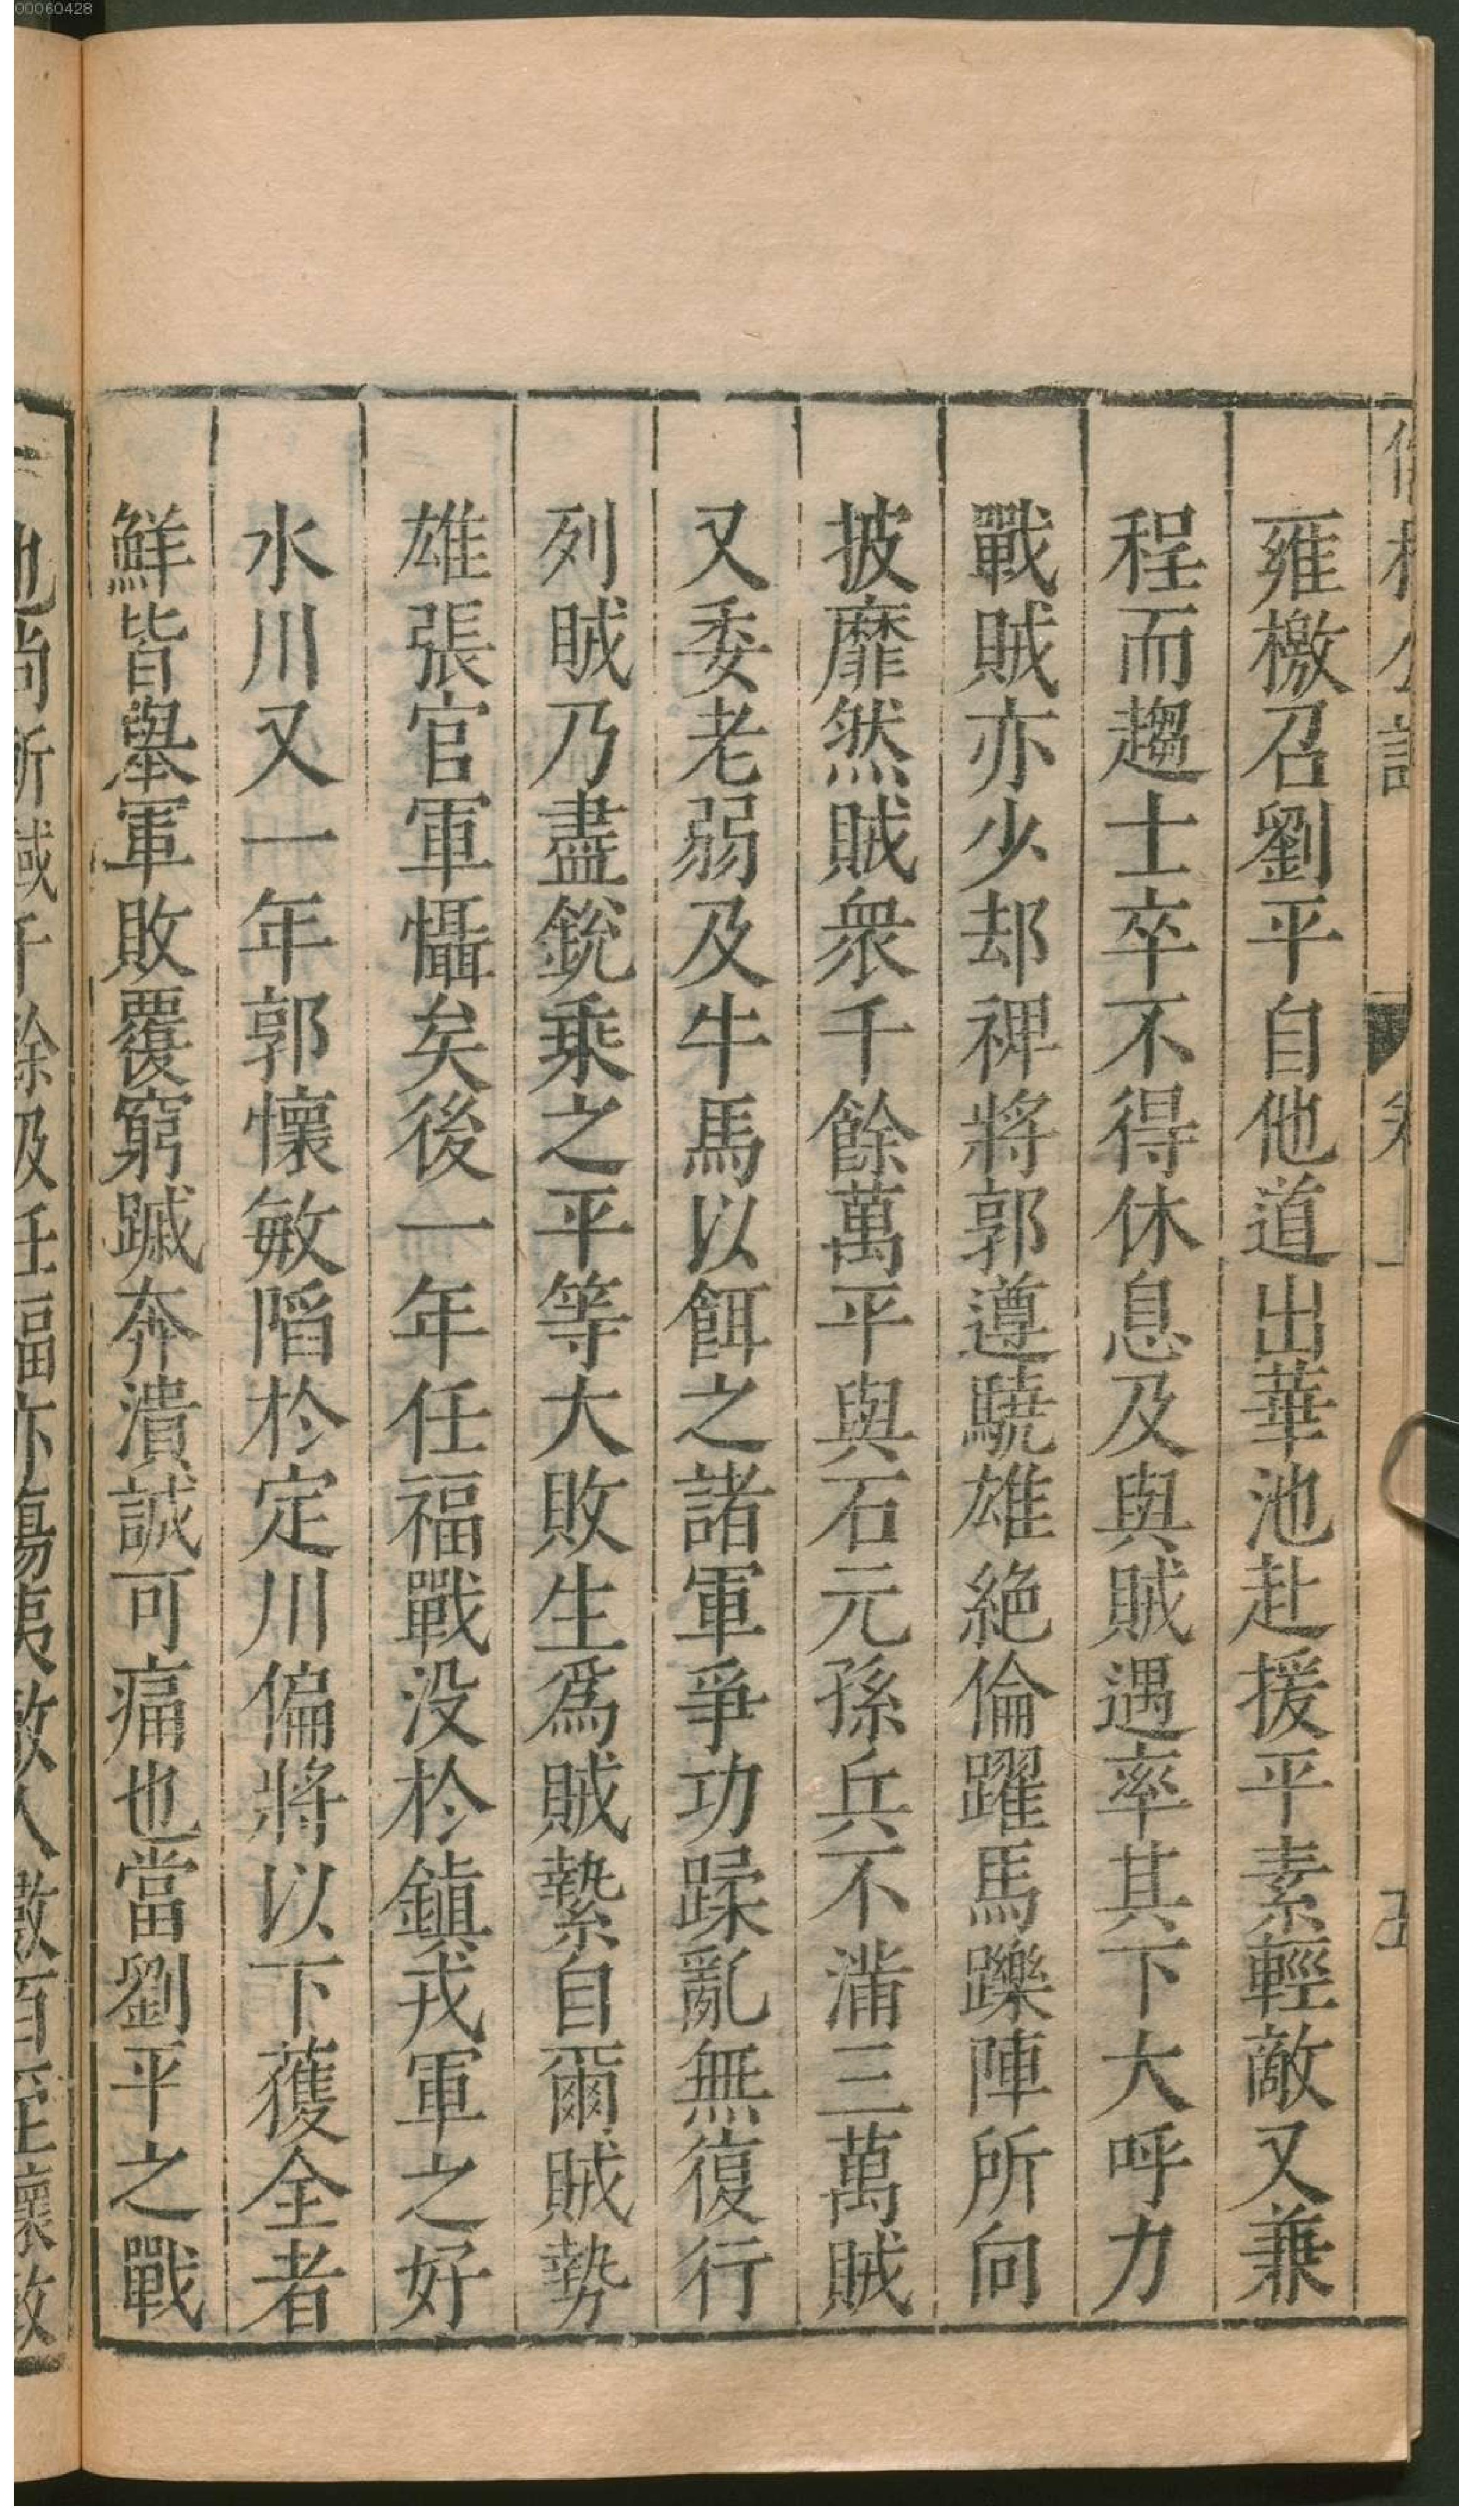 雍檄召劉平自他道出華池赴援平素輕敵又兼
程而趨士卒不得休息及與賊遇率其下大呼力
戰賊亦少却裨將郭遵驍雄絶倫躍馬躒陣所向
披靡然賊衆千餘萬平與石元孫兵不滿三萬賊
又委老弱及牛馬以餌之諸軍爭功蹂亂無復行
列賊乃盡銳乘之平等大敗生爲賊縶自爾賊勢
雄張官軍懾矣後一年任福戰没於鎮戎軍之好
水川又一年郭懷敏陷於定川偏將以下獲全者
鮮皆舉軍敗覆窮蹙奔潰誠可痛也當劉平之戰
00060428